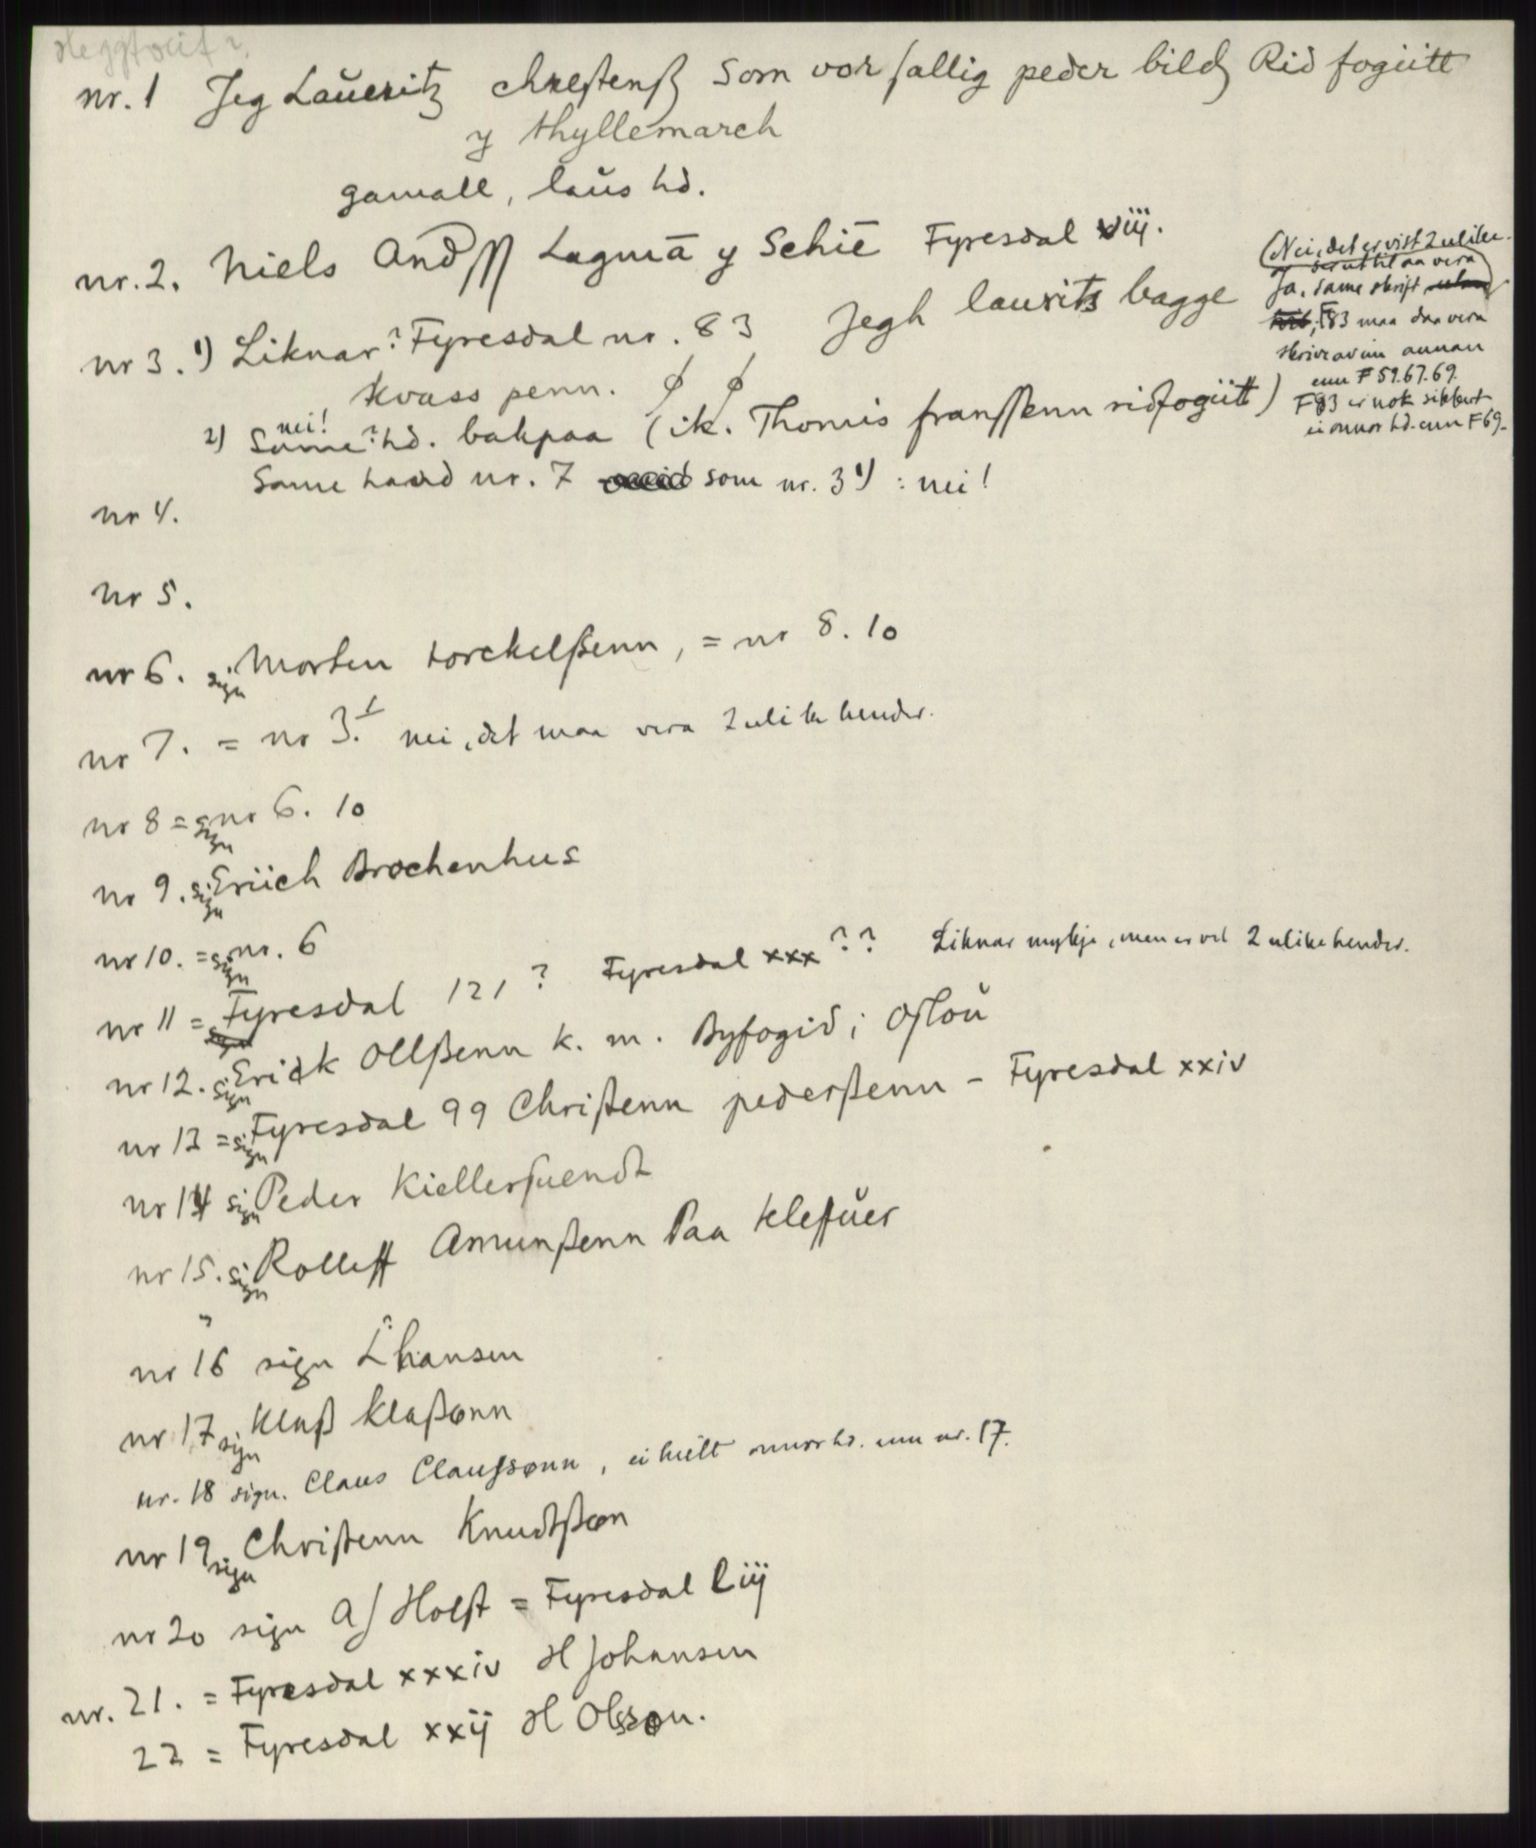 nr. 1 Jeg Laŭeritz chrestenß Som vor sallig peder bildz Rid fogiitt
y thyllemarch
gamall, laŭs hd.
nr. 2. Niels Andss Lagmā y Schiē Fyresdal viij.
(Nei, det er vist 2 ulike.
ser ut til aa vera
Ja, same skrift
F83 maa daa vera
skrive av ein annan
enn F 59. 67. 69.
F83 er nok sikkert
ei onnor hd. enn F69.
nr 3. 1) Liknar? Fyresdal nr. 83 Jegh laurits bagge
kvass penn.
2) Same? hd. bakpaa (ik. Thomis franssenn ridfogiitt)
nei!
Same haand nr. 7 som nr. 3 1) : nei!
nr 4.
nr 5.
nr 6. sign Morten torckelßenn, = nr 8. 10
nr 7. = nr 3.1 nei, det maa vera 2 ulike hender.
nr 8 = sign nr 6. 10
nr 9. sign Eriich Brochenhus
nr 10. = sign nr. 6
nr 11 = Fyresdal 121 ? Fyresdal xxx ?? Liknar mykje, men er vel 2 ulike hender.
nr 12. sign Erick Ollßenn k. m. Byfogid i Osloŭ
nr 13 = sign Fyresdal 99 Christenn pederßenn - Fyresdal xxiv
nr 14 sign Peder Kiellersuendt
nr 15. sign Rolleff Amunßenn Paa kleffŭer
nr 16 sign L? hansen
nr 17 sign Klaß klaßønn
nr. 18 sign. Claus Claussønn, ei heilt onnor hd. enn nr. 17.
nr 19 sign Christenn Knudtßøn
nr 20 sign A/ Holst = Fyresdal liij
nr. 21. = Fyresdal xxxiv H Johansen
22 = Fyresdal xxij H Olssøn.